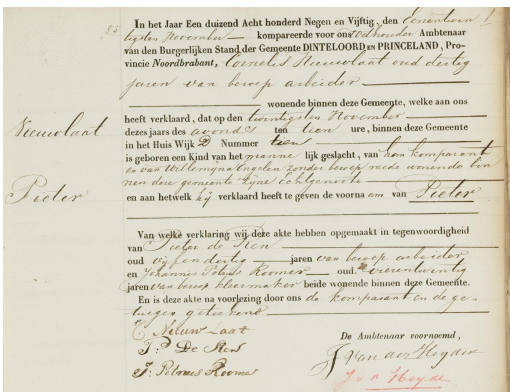 85
In het Jaar Een duizend Acht honderd Negen en Vijftig, den Eenentwin
tigsten November kompareerde voor ons Wethouder Ambtenaar
van den Burgerlijken Stand der Gemeente DINTELOORD EN PRINCELAND, Pro-
vincie Noordbrabant, Cornelis Nieuwlaat oud dertig
jaren van beroep arbeider
wonende binnen deze Gemeente, welke aan ons
heeft verklaard, dat op den twintigsten November
dezes jaars des avonds ten tien ure, binnen deze Gemeente
in het Huis Wijk D Nummer tien
is geboren een Kind van het manne lijk geslacht, van hem komparant
en van Willemyna Engelen zonder beroep mede wonende bin
nen deze gemeente zyne Echtgenoote
en aan hetwelk hij verklaard heeft te geven de voorna am van Pieter
Nieuwlaat
Pieter
Van welke verklaring wij deze akte hebben opgemaakt in tegenwoordigheid
van Pieter de
oud vyfendertig jaren van beroep arbeider
en Johannis Petrus Roomer oud vierentwintig
jaren van beroep kleermaker beide wonende binnen deze Gemeente.
En is deze akte na voorlezing door ons de komparant en de ge-
tuigen geteekend
C Nieuw Laat
P De
J: Petrus Roomer
De Ambtenaar voornoemd,
J Van der Heyden